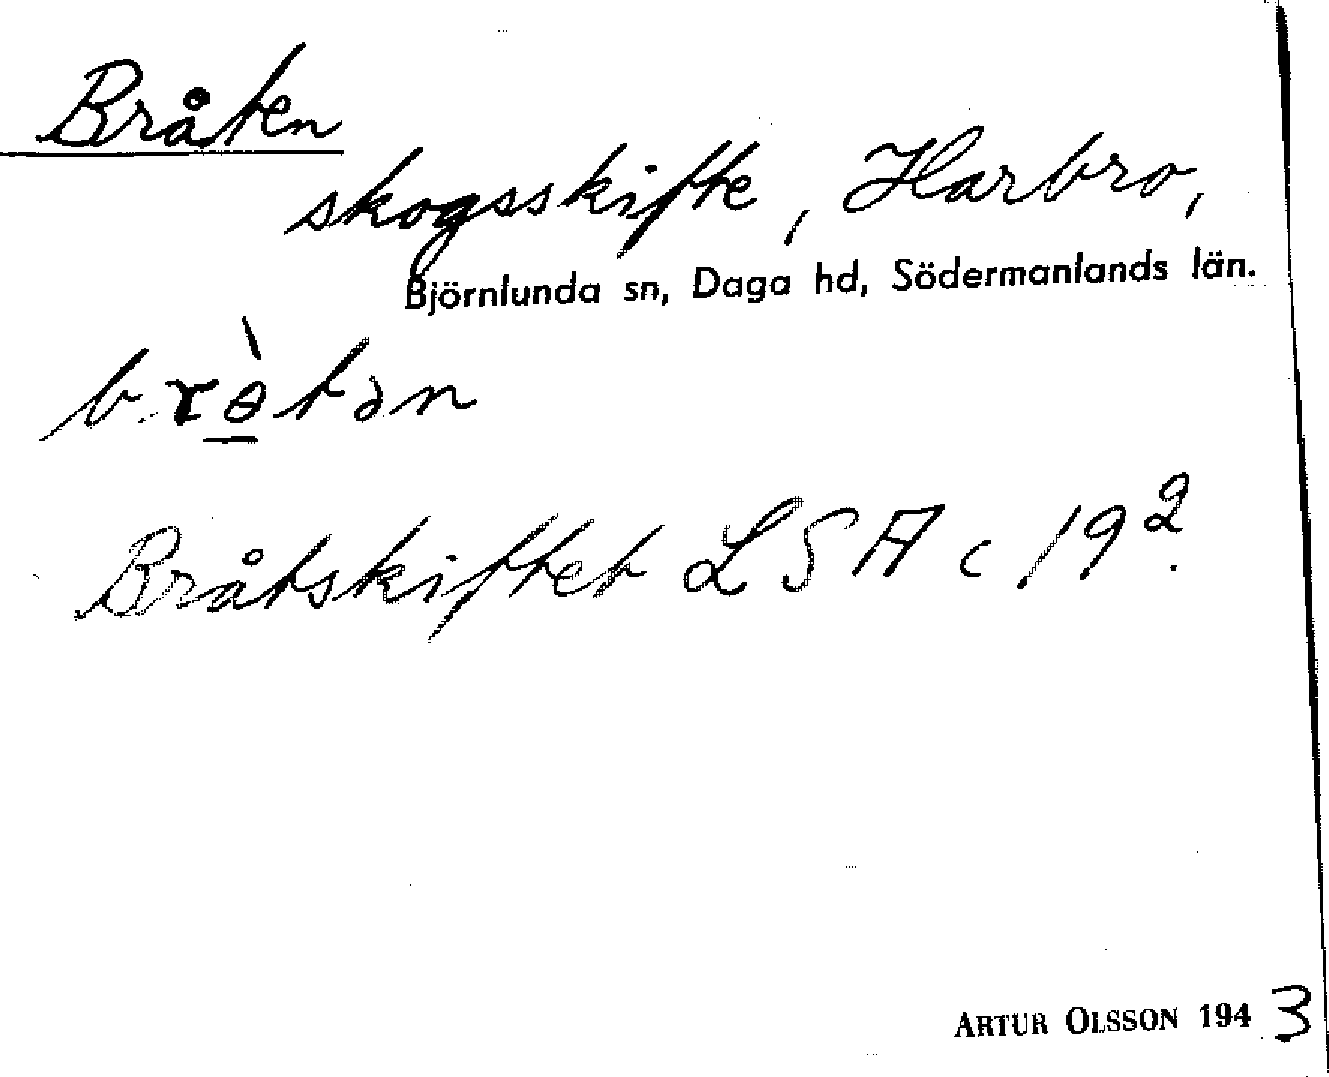 Bråten
skogsskifte, Harbro,
Björnlunda sn, Daga hd, Södermanlands län.
brɵ̠̀tən
Bråtskiftet LSA c 19².
ARTUR OLSSON 1943